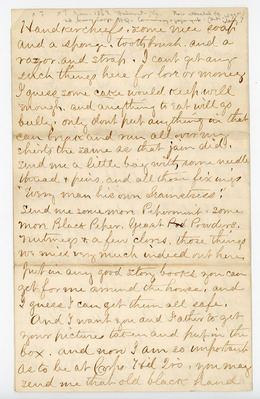 Handkercheifs, some nice soap
and a sponge. toothbrush. and a
razor and strap. I cant get any
such things here for love or money
I guess some cake would keep well
enough. and anything to eat will go
bully. only dont put anything in that
can break and run all over my
shirts the same as that jam did.
send me a little bag with some needles
thread & pins. and all those fixings
"Every man his own Seamstress".
Send me some more Peperment & some
more Black Peper. Powders.
nutmegs & a few cloves, those things
we need very much indeed out here
Put in any good story books you can
get for me around the house, and
I guess I can get them all safe.
And I want you and Father to get
your picture taken and put in the
box. and now I am so important
as to be at Corps Hd Qrs. you may
send me that old black